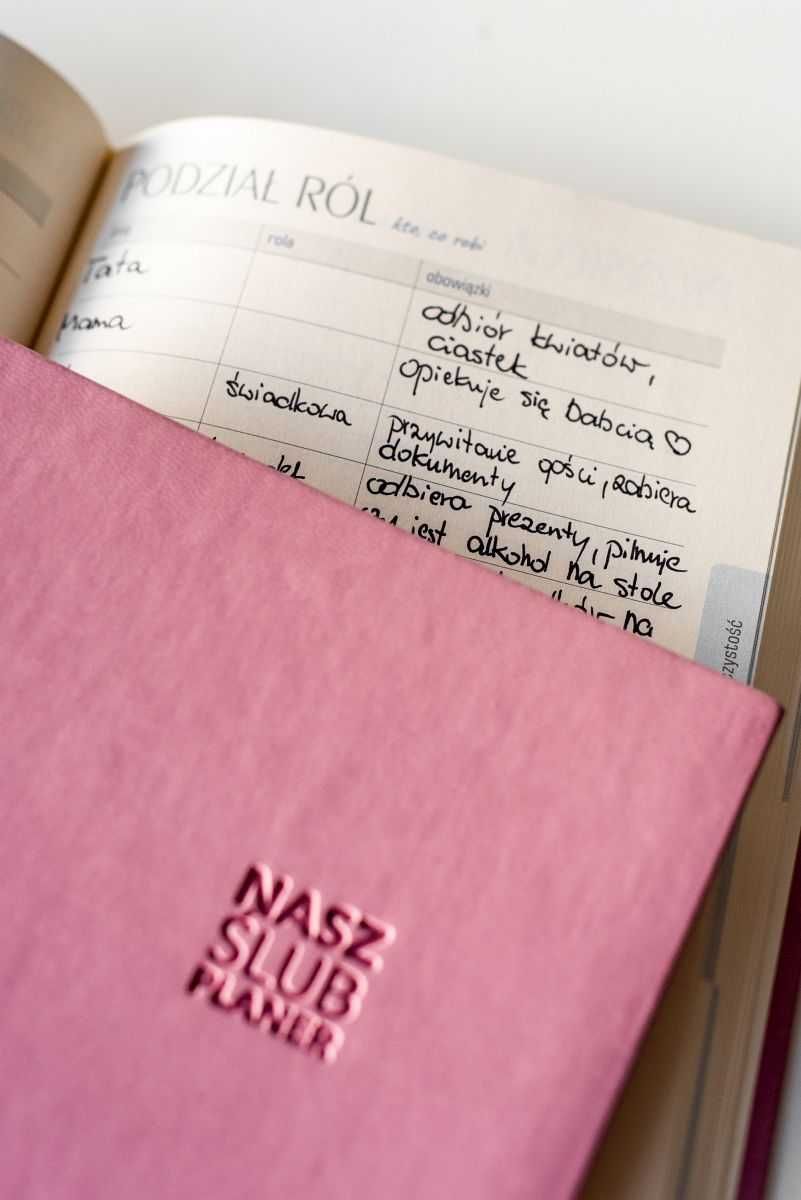 PODZIAŁ RÓL kto, co robi
rola
obowiązki
Tata
odbiór kwiatów,
ciastek
Mama
opiekuje się babcią ♡
świadkowa
przywitanie gości, zabiera
dokumenty
odbiera prezenty, pilnuje
czy jest alkohol na stole
na
NASZ
ŚLUB
PLANER